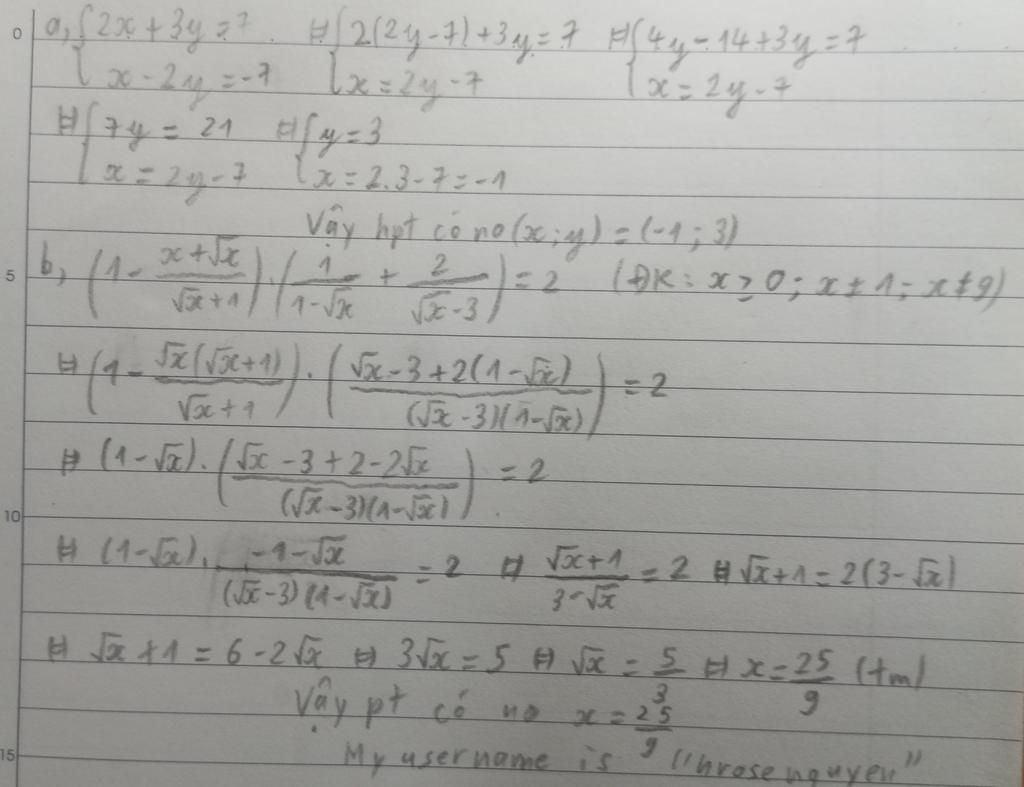 0
a, { 2x + 3y = 7 ⇔ { 2(2y-7) + 3y = 7 ⇔ { 4y - 14 + 3y = 7
x - 2y = -7 x = 2y - 7 x = 2y - 7
⇔ { 7y = 21 ⇔ { y = 3
x = 2y - 7 x = 2.3 - 7 = -1
Vậy hpt có no (x; y) = (-1; 3)
5
b, (1 - (x+√x)/(√x+1)) . (1/(1-√x) + 2/(√x-3)) = 2 (ĐK: x ≥ 0; x ≠ 1; x ≠ 9)
⇔ (1 - √x(√x+1)/(√x+1)) . ((√x - 3 + 2(1-√x))/((√x-3)(1-√x))) = 2
⇔ (1-√x) . ((√x - 3 + 2 - 2√x)/((√x-3)(1-√x))) = 2
10
⇔ (1-√x) . (-1-√x)/((√x-3)(1-√x)) = 2 ⇔ (√x+1)/(3-√x) = 2 ⇔ √x+1 = 2(3-√x)
⇔ √x + 1 = 6 - 2√x ⇔ 3√x = 5 ⇔ √x = 5/3 ⇔ x = 25/9 (tm)
Vậy pt có no x = 25/9
15
My username is "hrosenguyen"